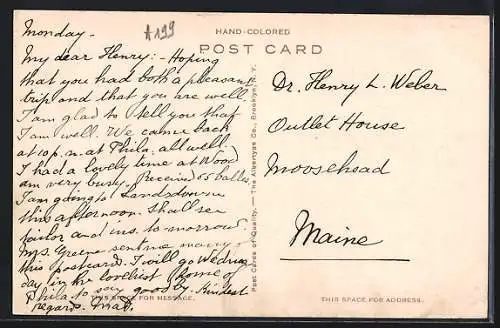 Monday -
A199
HAND-COLORED
POST CARD
My dear Henry: - Hoping
that you had both a pleasant
trip and that you are well.
I am glad to tell you that
I am well. We came back
at 10 p.m. at Phila. all well.
I had a lovely time at Wood
am very busy. Received 65
I am going to Lansdowne
this afternoon. Shall see
tailor and ins. to-morrow.
Mrs. sent me many
this postcard. I will go Wednes
day in the loveliest home of
Phila. to say good by. Kindest
regards.
THIS SPACE FOR MESSAGE.
Post Cards of Quality. - The Albertype Co., Brooklyn, N. Y.
Dr. Henry L. Weber
Outlet House
Moosehead
Maine
THIS SPACE FOR ADDRESS.